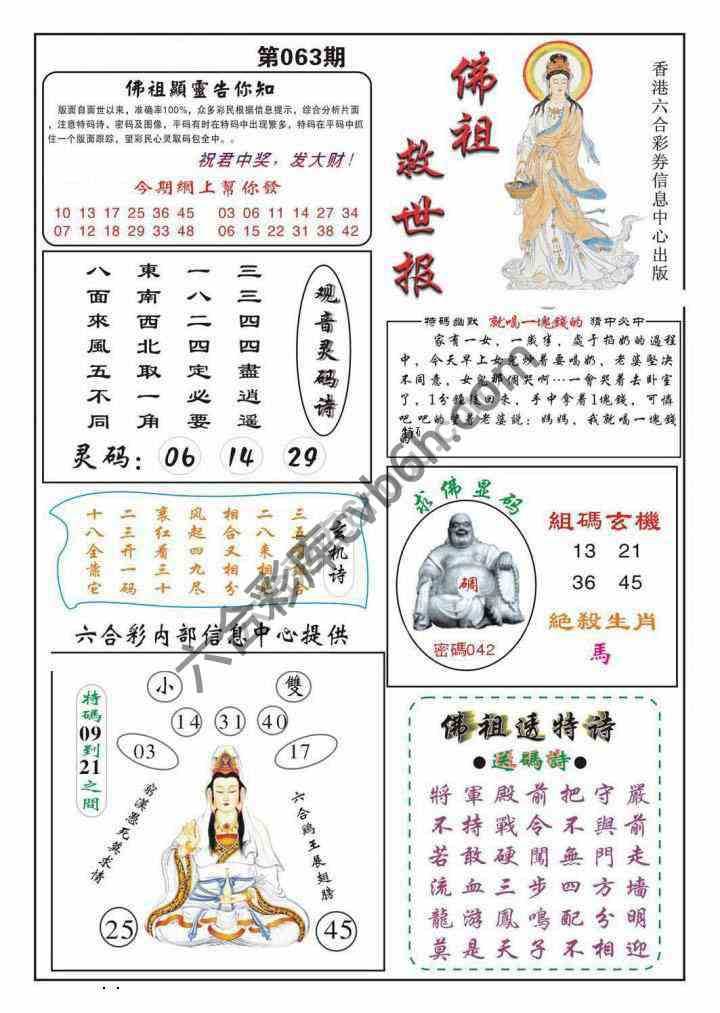 第063期
佛祖顯靈告你知
版面自面世以来，准确率100%，众多彩民根据信息提示，综合分析片面
，注意特码诗、密码及图像，平码有时在特码中出现繁多，特码在平码中抓
住一个版面跟踪，望彩民心灵取码包全中。。
祝君中奖，发大财！
今期網上幫你發
10 13 17 25 36 45 03 06 11 14 27 34
07 12 18 29 33 48 06 15 22 31 38 42
佛祖
救世报
香港六合彩券信息中心出版
观音灵码诗
三三四四盡逍遥
一八二四定必要
東南西北取一角
八面來風五不同
灵码： 06 14 29
特碼幽默 就喝一塊錢的 猜中必中
家有一女，一歲半，處于掐奶的過程
中，今天早上女兒吵着要喝奶，老婆堅决
不同意，女兒那個哭啊…一會哭着去卧室
了，1分鐘後回來，手中拿着1塊錢，可憐
吧吧的望着老婆說：媽媽，我就喝一塊錢
的
玄机诗
三五
二八来
相合又相分
风起四九尽
裏红看三十
二三开一码
十八全靠它
六合彩内部信息中心提供
求佛显码
碉
密碼042
組碼玄機
13 21
36 45
絶殺生肖
馬
小 雙
14 31 40
03 17
特碼09到21之間
窮漢愚死莫求情
六合鸡王展翅膀
25 45
佛祖透特诗
●送碼詩●
將軍殿前把守嚴
不持戰令不與前
若敢硬闖無門走
流血三步四方墻
龍游鳳鳴配分明
莫是天子不相迎
六合彩库cvb6h.com